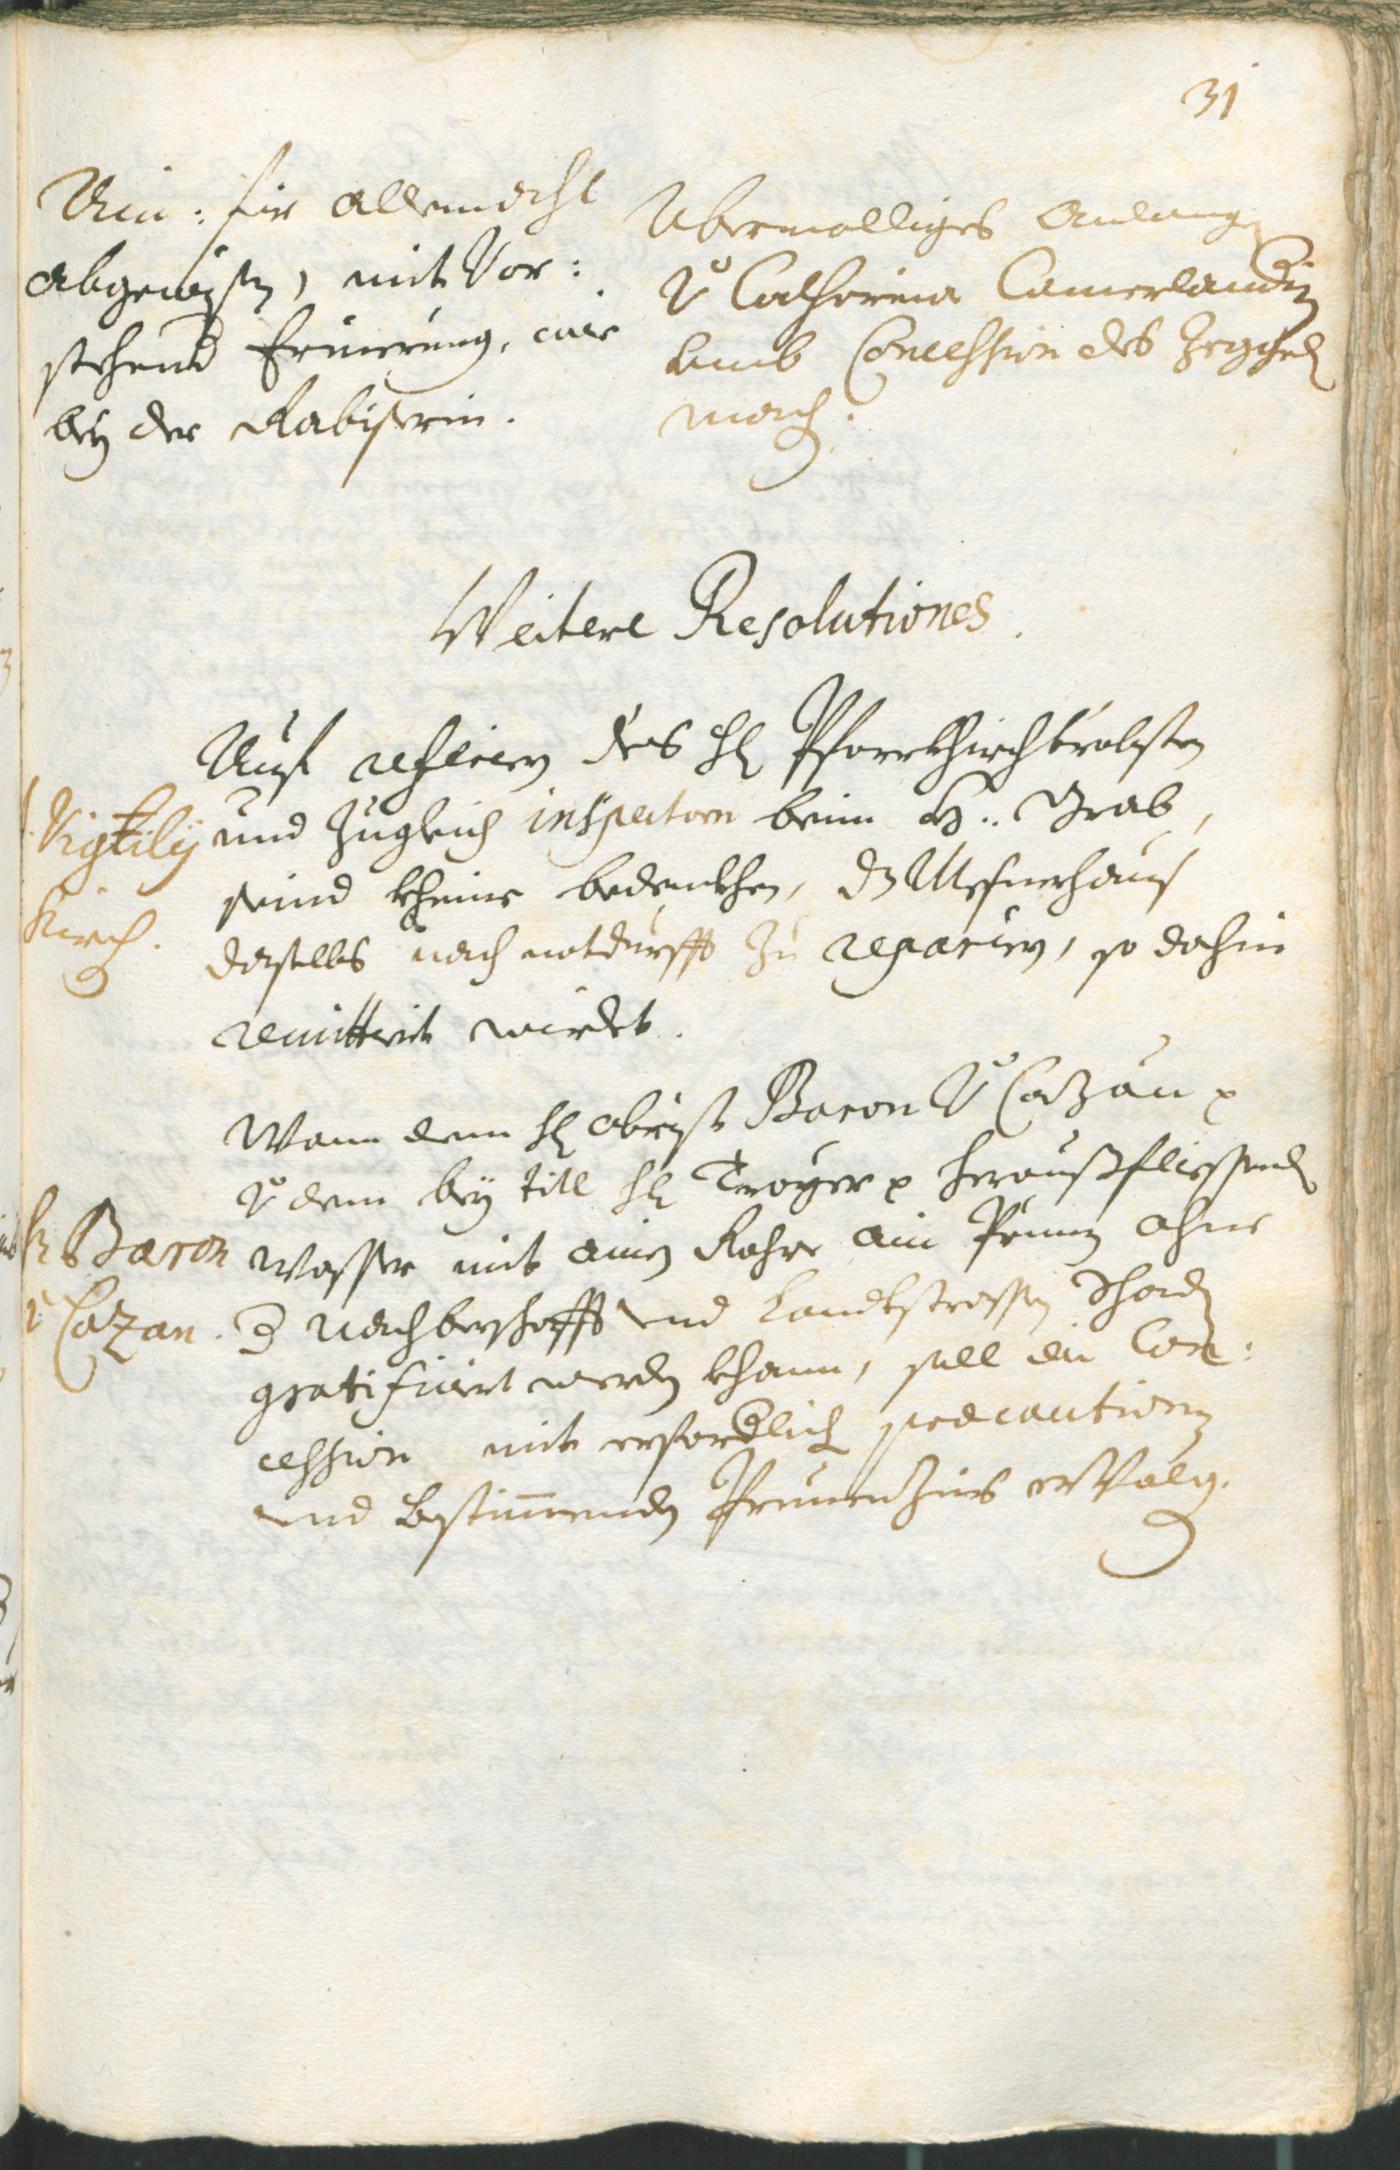 31
Ain: für allemahl
abgewisen, mit Vor:
stehend Erinerung, wie
bey der Rabiserin.
Abermalliges Anlang
v Catharina Camerlandin
umb Concession des
mach.
Weitere Resolutiones.
Auf referiern des H Pfarrkhirchbrobsten
und zugleich inspectorn beim H: Grab,
seind kheine bedenkhen, dz Mesnerhaus
daselbs nach notdurfft zu reparirn, so dahin
remittiert wirdet.
S: Vigilij
Kirch.
Wann dem H obrist Baron v Cazan
v dem bey titl H Troyer heraußfliessend
Wasser mit ainem Rohr ain Prunn ohne
der nachberschafft und Landtstrassen Schad
gratificiert werden khann, soll die Con:
cession mit erforderlich precautionen
und bestimmenden Prunenzins ervolg.
H Baron
v: Cazan.